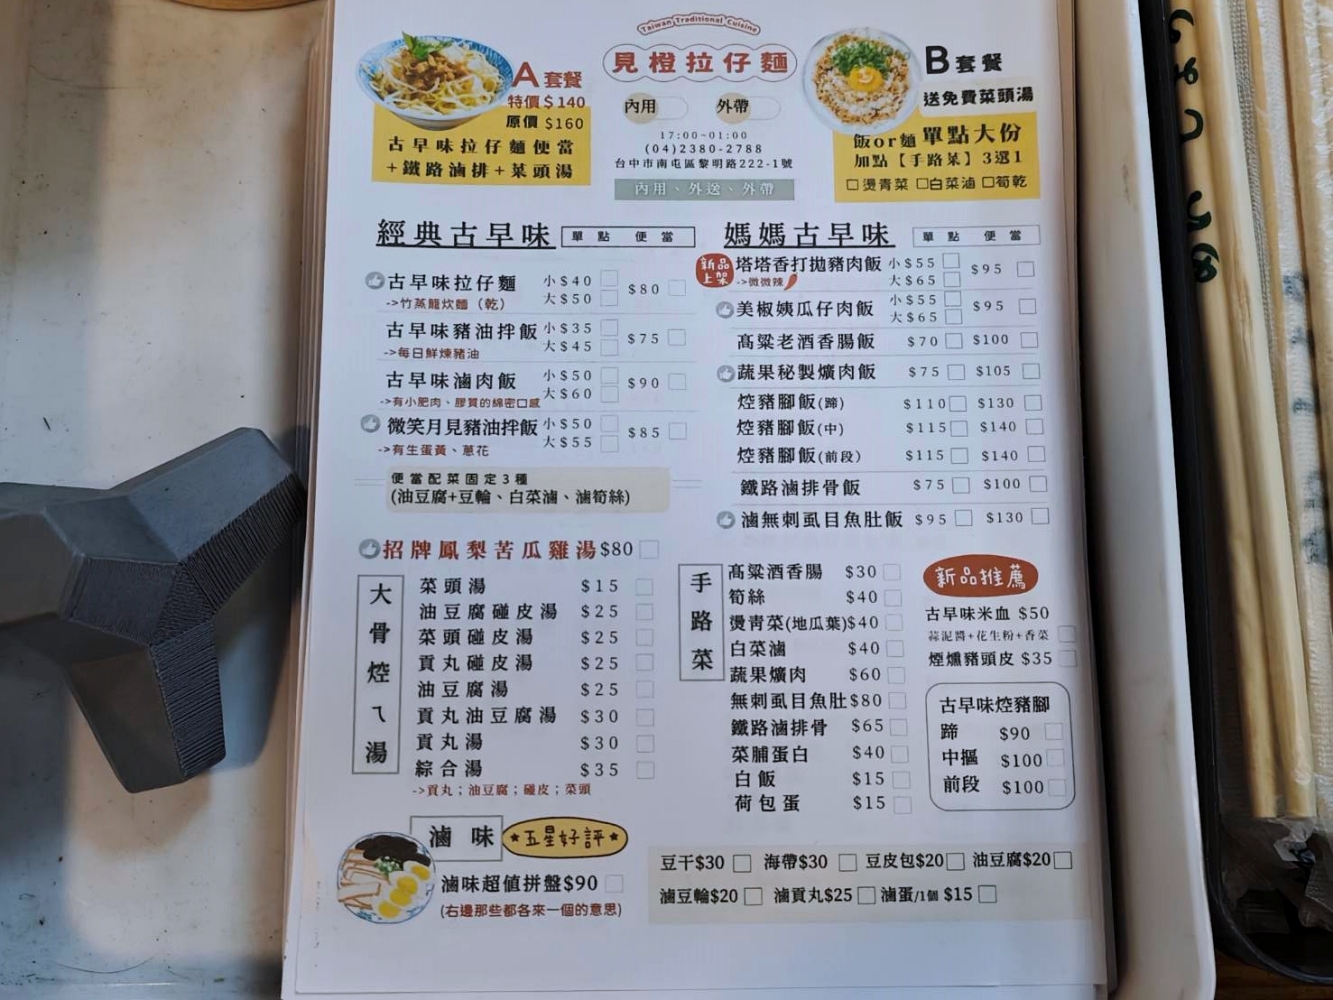 Taiwan Traditional Cuisine
見橙拉仔麵
內用 外帶
17:00~01:00
(04)2380-2788
台中市南屯區黎明路222-1號
內用、外送、外帶
A套餐
特價$140
原價 $160
古早味拉仔麵便當
+鐵路滷排+菜頭湯
B套餐
送免費菜頭湯
飯or麵 單點大份
加點【手路菜】3選1
□燙青菜 □白菜滷 □筍乾
經典古早味 單點 便當
古早味拉仔麵 小$40 大$50 $80
->竹蒸籠炊麵（乾）
古早味豬油拌飯 小$35 大$45 $75
->每日鮮煉豬油
古早味滷肉飯 小$50 大$60 $90
->有小肥肉、膠質的綿密口感
微笑月見豬油拌飯 小$50 大$55 $85
->有生蛋黃、蔥花
便當配菜固定3種
(油豆腐+豆輪、白菜滷、滷筍絲)
媽媽古早味 單點 便當
新品上架 塔塔香打拋豬肉飯 小$55 大$65 $95
->微微辣
美椒姨瓜仔肉飯 小$55 大$65 $95
高粱老酒香腸飯 $70 $100
蔬果秘製爌肉飯 $75 $105
焢豬腳飯(蹄) $110 $130
焢豬腳飯(中) $115 $140
焢豬腳飯(前段) $115 $140
鐵路滷排骨飯 $75 $100
滷無刺虱目魚肚飯 $95 $130
招牌鳳梨苦瓜雞湯$80
大骨焢ㄟ湯
菜頭湯 $15
油豆腐碰皮湯 $25
菜頭碰皮湯 $25
貢丸碰皮湯 $25
油豆腐湯 $25
貢丸油豆腐湯 $30
貢丸湯 $30
綜合湯 $35
->貢丸；油豆腐；碰皮；菜頭
手路菜
高粱酒香腸 $30
筍絲 $40
燙青菜(地瓜葉)$40
白菜滷 $40
蔬果爌肉 $60
無刺虱目魚肚$80
鐵路滷排骨 $65
菜脯蛋白 $40
白飯 $15
荷包蛋 $15
新品推薦
古早味米血 $50
蒜泥醬+花生粉+香菜
煙燻豬頭皮 $35
古早味焢豬腳
蹄 $90
中摳 $100
前段 $100
滷味 ★五星好評★
滷味超值拼盤$90
(右邊那些都各來一個的意思)
豆干$30 海帶$30 豆皮包$20 油豆腐$20
滷豆輪$20 滷貢丸$25 滷蛋/1個 $15